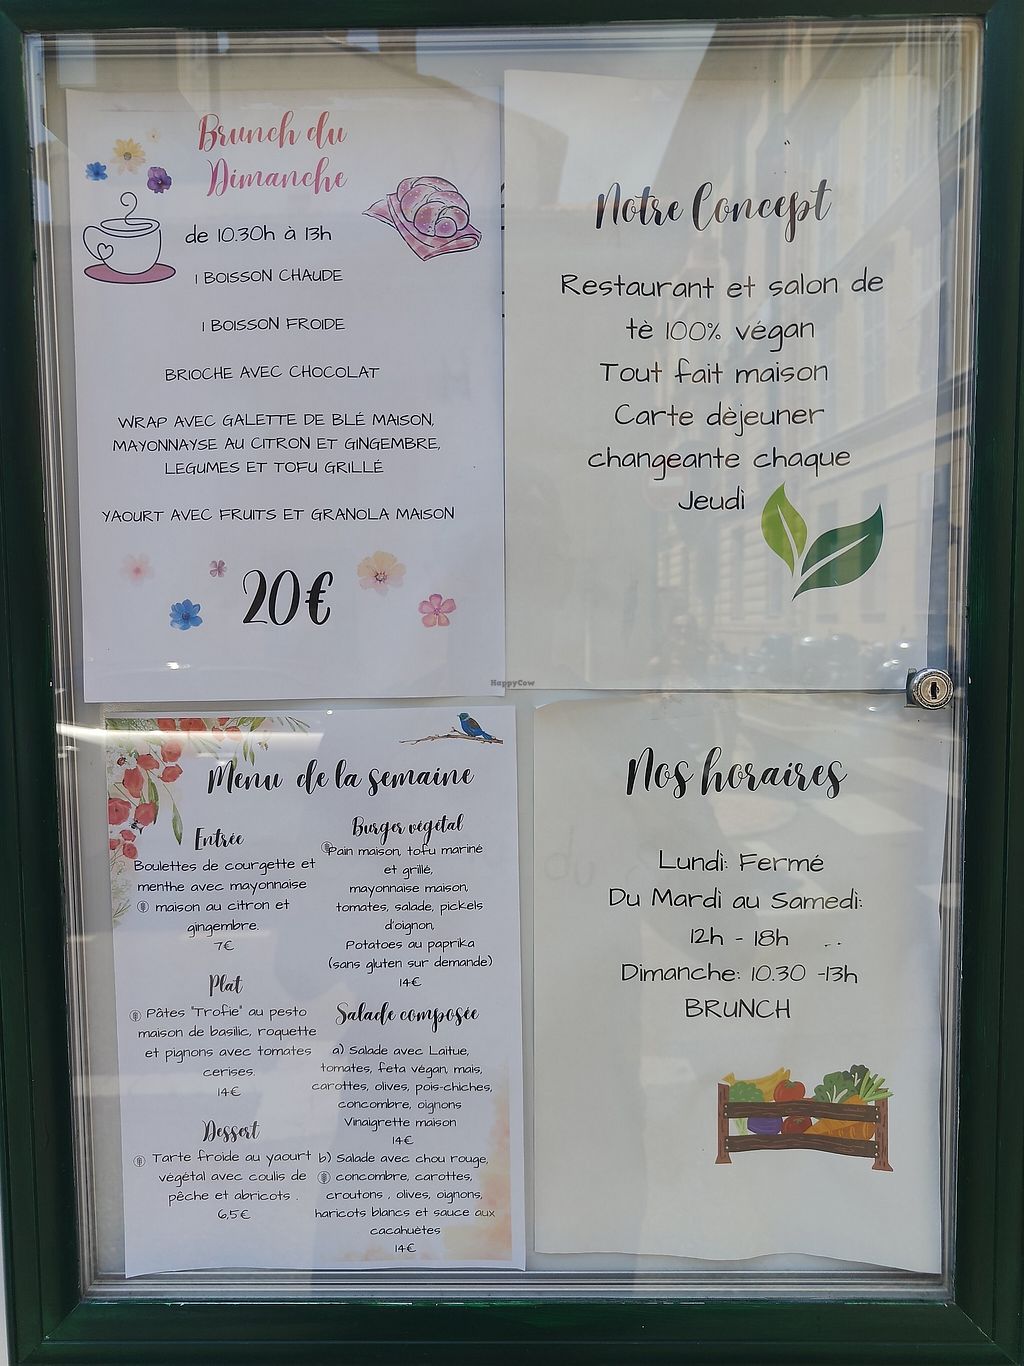 Brunch du
Dimanche
de 10.30h à 13h
1 BOISSON CHAUDE
1 BOISSON FROIDE
BRIOCHE AVEC CHOCOLAT
WRAP AVEC GALETTE DE BLÉ MAISON,
MAYONNAYSE AU CITRON ET GINGEMBRE,
LEGUMES ET TOFU GRILLÉ
YAOURT AVEC FRUITS ET GRANOLA MAISON
20€
Notre Concept
Restaurant et salon de
tè 100% végan
Tout fait maison
Carte dèjeuner
changeante chaque
Jeudi
HappyCow
Menu de la semaine
Entrée
Boulettes de courgette et
menthe avec mayonnaise
maison au citron et
gingembre.
7€
Plat
Pâtes "Trofie" au pesto
maison de basilic, roquette
et pignons avec tomates
cerises.
14€
Dessert
Tarte froide au yaourt
végétal avec coulis de
pêche et abricots .
6,5€
Burger végétal
Pain maison, tofu mariné
et grillé,
mayonnaise maison,
tomates, salade, pickels
d'oignon,
Potatoes au paprika
(sans gluten sur demande)
14€
Salade composée
a) Salade avec Laitue,
tomates, feta végan, mais,
carottes, olives, pois-chiches,
concombre, oignons
Vinaigrette maison
14€
b) Salade avec chou rouge,
concombre, carottes,
croutons , olives, oignons,
haricots blancs et sauce aux
cacahuètes
14€
Nos horaires
Lundi: Fermé
Du Mardi au Samedi:
12h - 18h
Dimanche: 10.30 -13h
BRUNCH